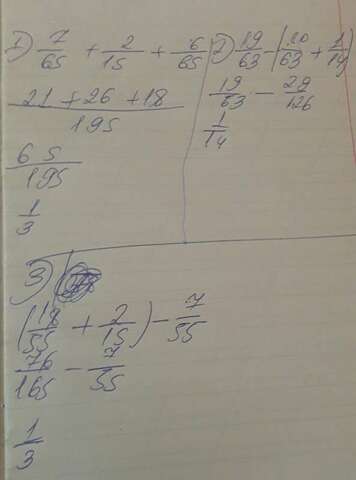 1) 7/65 + 2/15 + 6/65
(21 + 26 + 18)/195
65/195
1/3
2) 19/63 - (10/63 + 1/14)
19/63 - 29/126
1/14
3)
(18/55 + 2/15) - 7/55
76/165 - 7/55
1/3